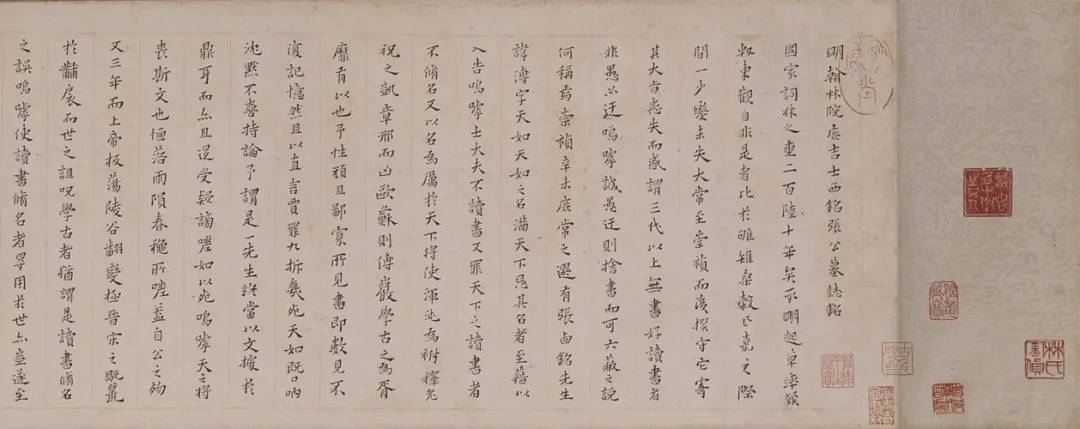 明翰林院庶吉士西銘張公墓誌銘
國家詞林之重二百陸十年矣承明起草濡毫
東觀自非是者比於雊雉桑穀已嘉之際
間一少變未失大常至崇禎而後撰字它寄
其大者患失而惑謂三代以上無書好讀書者
非愚必迂嗚嘑誠愚迂則捨書而可六蔽之說
何稱焉崇禎辛未庶常之選有張西銘先生
諱溥字天如天如之名滿天下忌其名者至藉以
入告嗚嘑士大夫不讀書又罪天下之讀書者
不脩名又以名為厲於天下將使渾沌為樹穉
祝之凱章邪而凶歐蘇則傅巖學古之為胥
靡有以也予性頑且鄙寡所見書即數見不
復記憶然且以直言賈罪九折幾死天如既口吶
沈默不喜持論予謂是一先生終當以文據於
鼎耳而亦且蒙受疑謗嗟如以死嗚嘑天之將
喪斯文也恆落雨隕春穐所嗟益自公之歿
又三年而上帝板蕩陵谷翻變極晉宋之
於黼扆而世之詛呪學古者猶謂是讀書脩名
之誤嗚嘑使讀書脩名者早用於世亦豈遂至
林氏